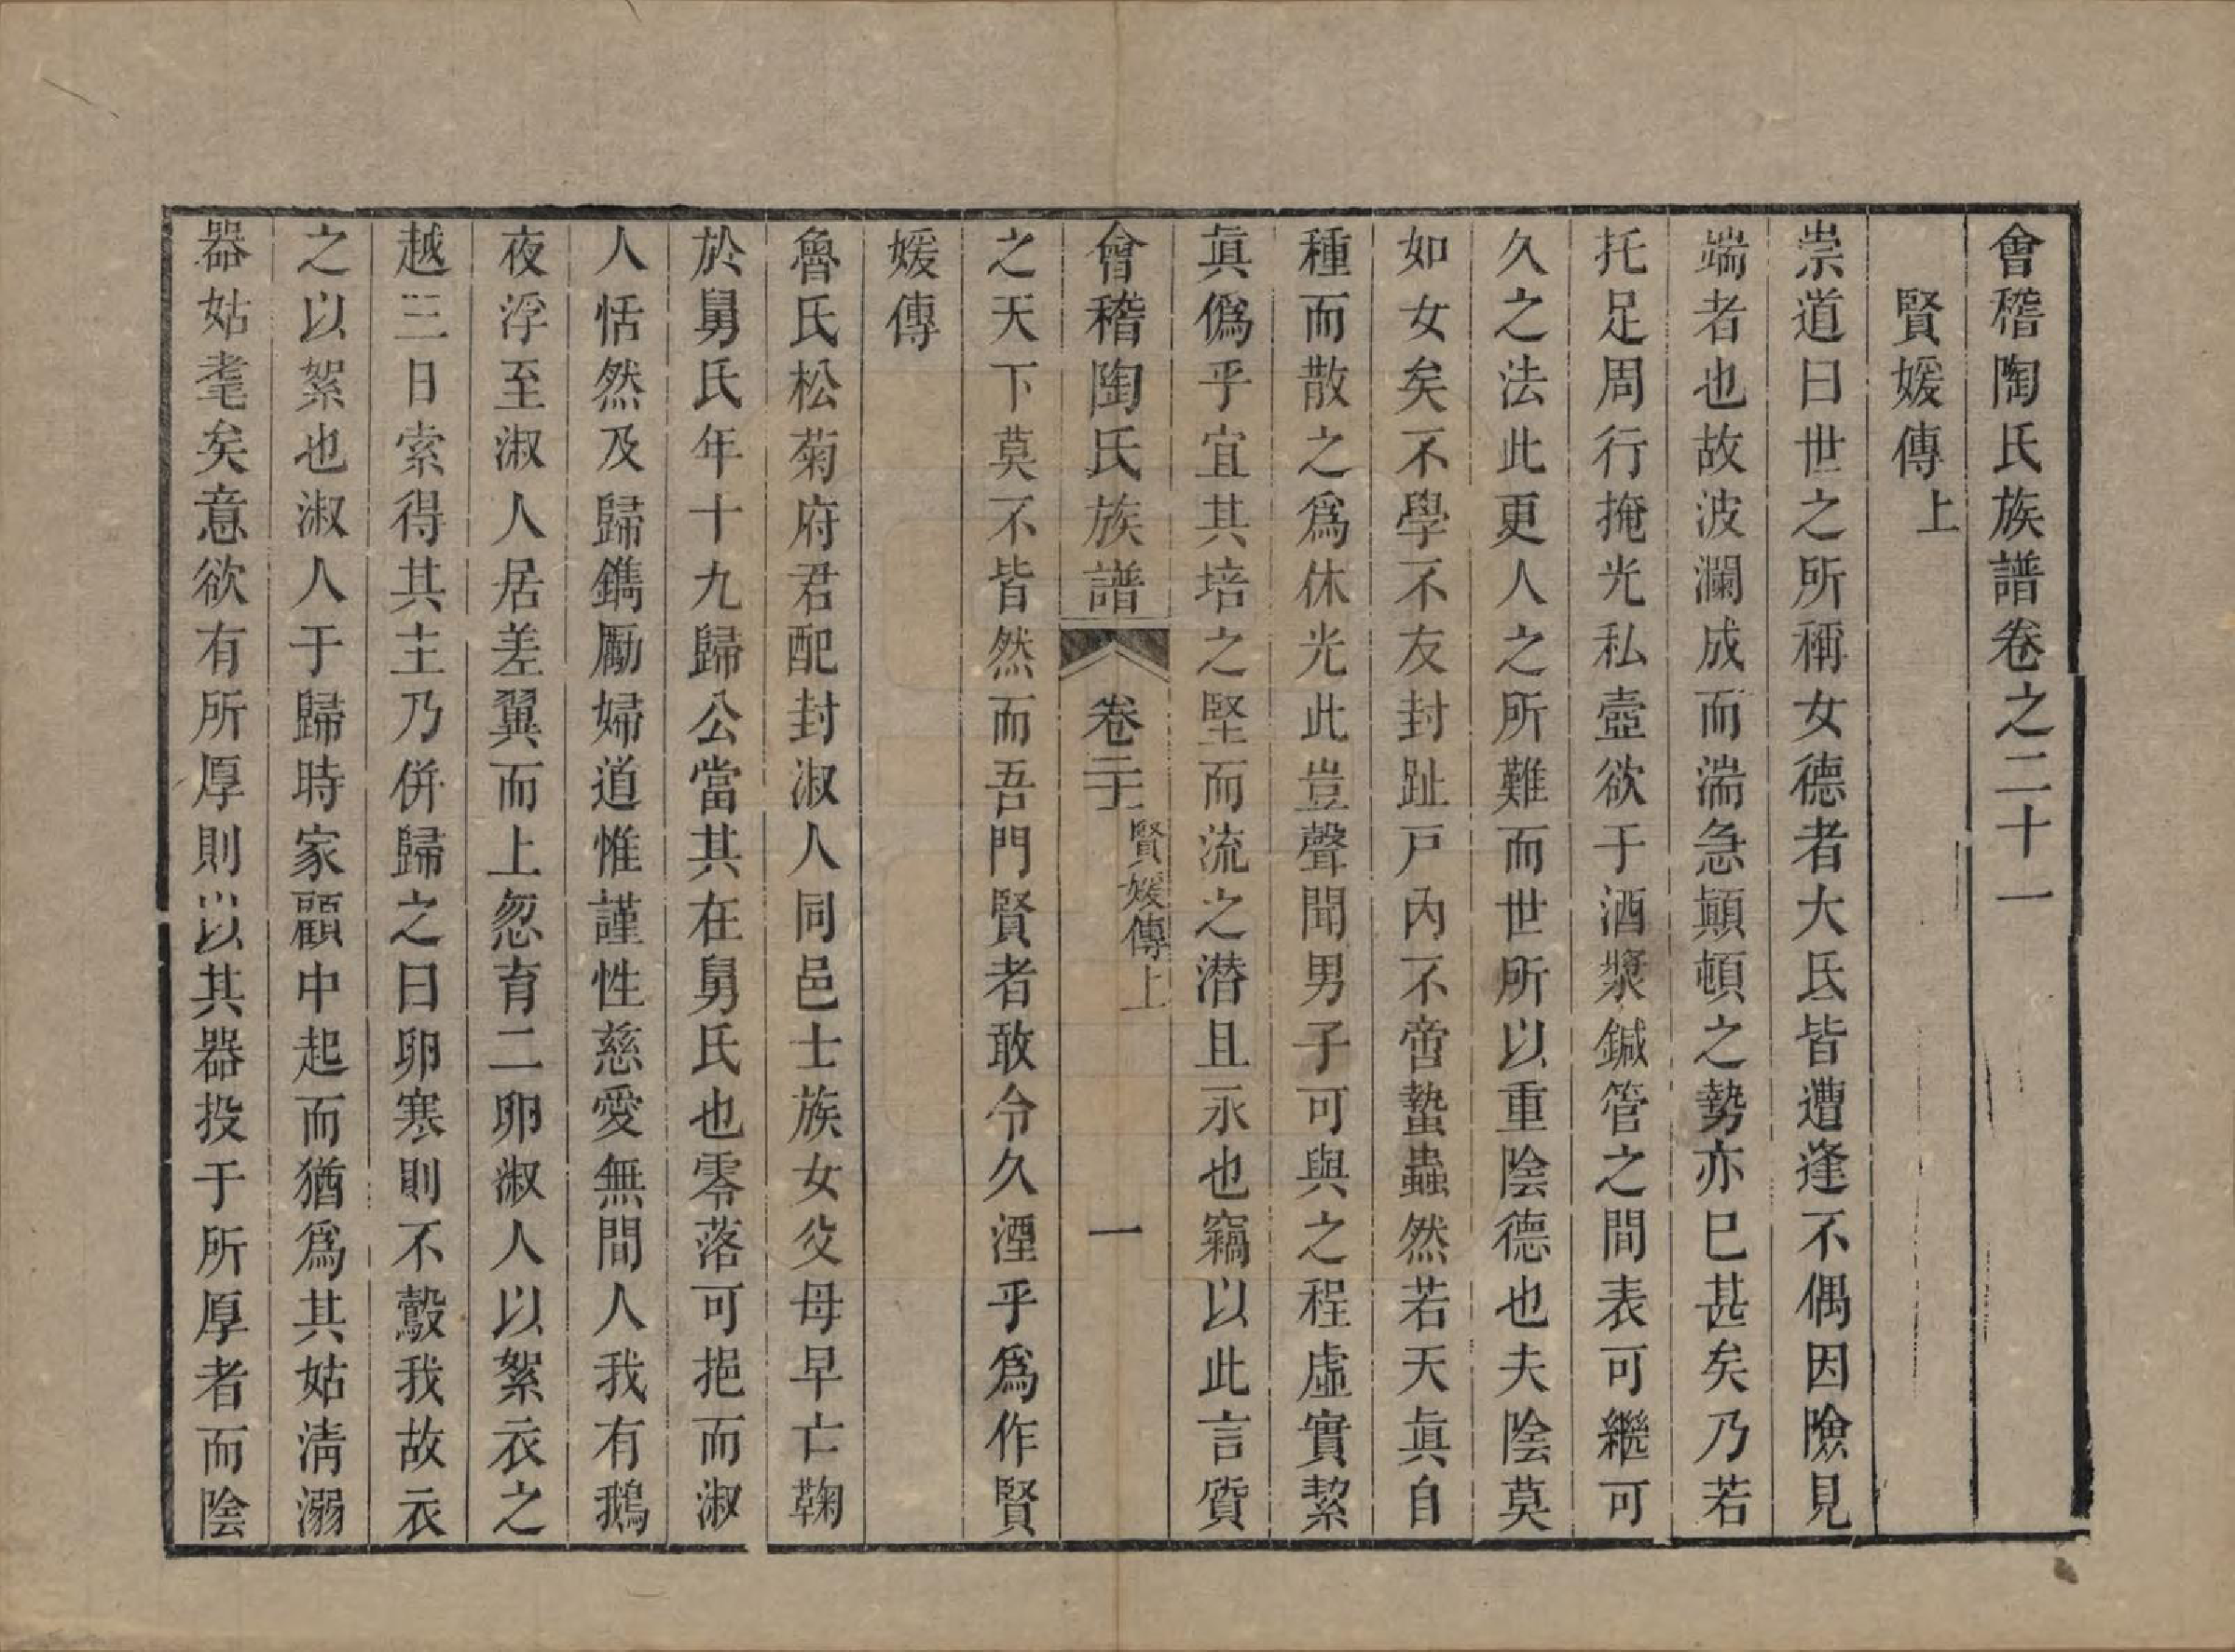 會稽陶氏族譜卷之二十一
賢媛傳上
崇道曰世之所稱女德者大氐皆遭逢不偶因險見
端者也故波瀾成而湍急顚頓之勢亦巳甚矣乃若
托足周行掩光私壼欲于酒漿鍼管之間表可繼可
久之法此更人之所難而世所以重陰德也夫陰莫
如女矣不學不友封趾戸內不啻蟄蟲然若天眞自
種而散之爲休光此豈聲聞男子可與之程虛實絜
眞僞乎宜其培之堅而流之潜且永也竊以此言質
會稽陶氏族譜
卷二十一
賢媛傳上
一
之天下莫不皆然而吾門賢者敢令久湮乎爲作賢
媛傳
魯氏松菊府君配封淑人同邑士族女父母早亡鞠
於舅氏年十九歸公當其在舅氏也零落可挹而淑
人恬然及歸鐫勵婦道惟謹性慈愛無間人我有鵝
夜浮至淑人居差翼而上忽育二卵淑人以絮衣之
越三日索得其主乃併歸之曰卵寒則不鷇我故衣
之以絮也淑人于歸時家顧中起而猶爲其姑淸溺
器姑耄矣意欲有所厚則以其器投于所厚者而陰